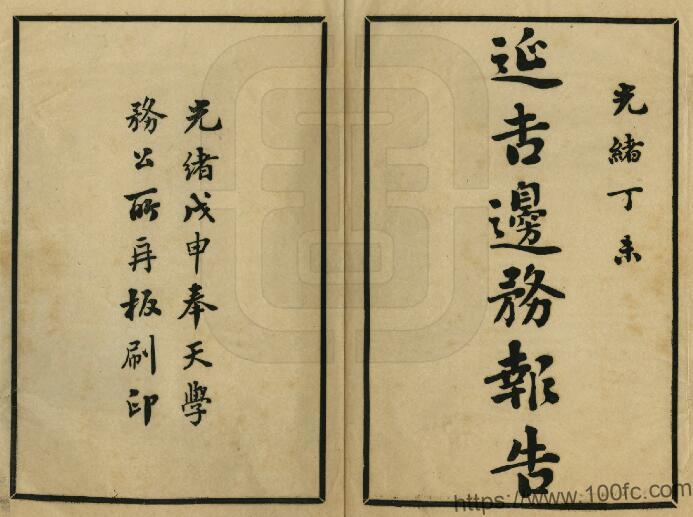 光緒丁未
延吉邊務報告
光緒戊申奉天學
務公所再板刷印
https://www.100fc.com